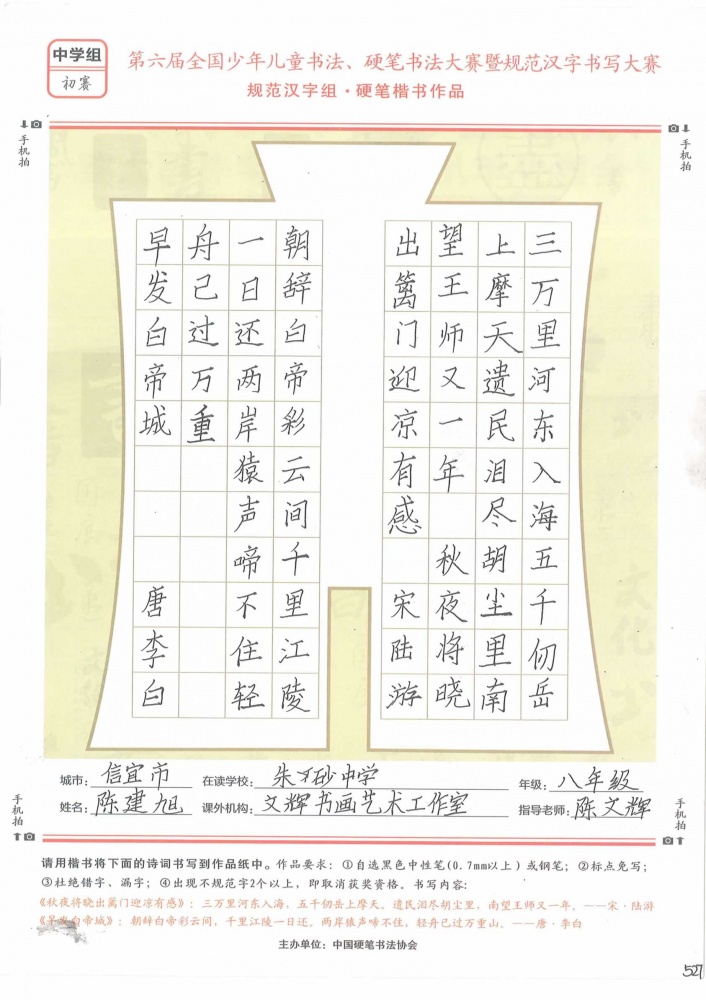 中学组
初赛
第六届全国少年儿童书法、硬笔书法大赛暨规范汉字书写大赛
规范汉字组·硬笔楷书作品
手机拍
手机拍
三万里河东入海五千仞岳
上摩天遗民泪尽胡尘里南
望王师又一年 秋夜将晓
出篱门迎凉有感 宋陆游
朝辞白帝彩云间千里江陵
一日还两岸猿声啼不住轻
舟已过万重
早发白帝城 唐李白
城市：信宜市 在读学校：朱砂中学 年级：八年级
姓名：陈建旭 课外机构：文辉书画艺术工作室 指导老师：陈文辉
手机拍
手机拍
请用楷书将下面的诗词书写到作品纸中。作品要求：①自选黑色中性笔(0.7mm以上)或钢笔；②标点免写；
③杜绝错字、漏字；④出现不规范字2个以上，即取消获奖资格。书写内容：
《秋夜将晓出篱门迎凉有感》：三万里河东入海，五千仞岳上摩天。遗民泪尽胡尘里，南望王师又一年。——宋·陆游
《早发白帝城》：朝辞白帝彩云间，千里江陵一日还。两岸猿声啼不住，轻舟已过万重山。——唐·李白
主办单位：中国硬笔书法协会
527